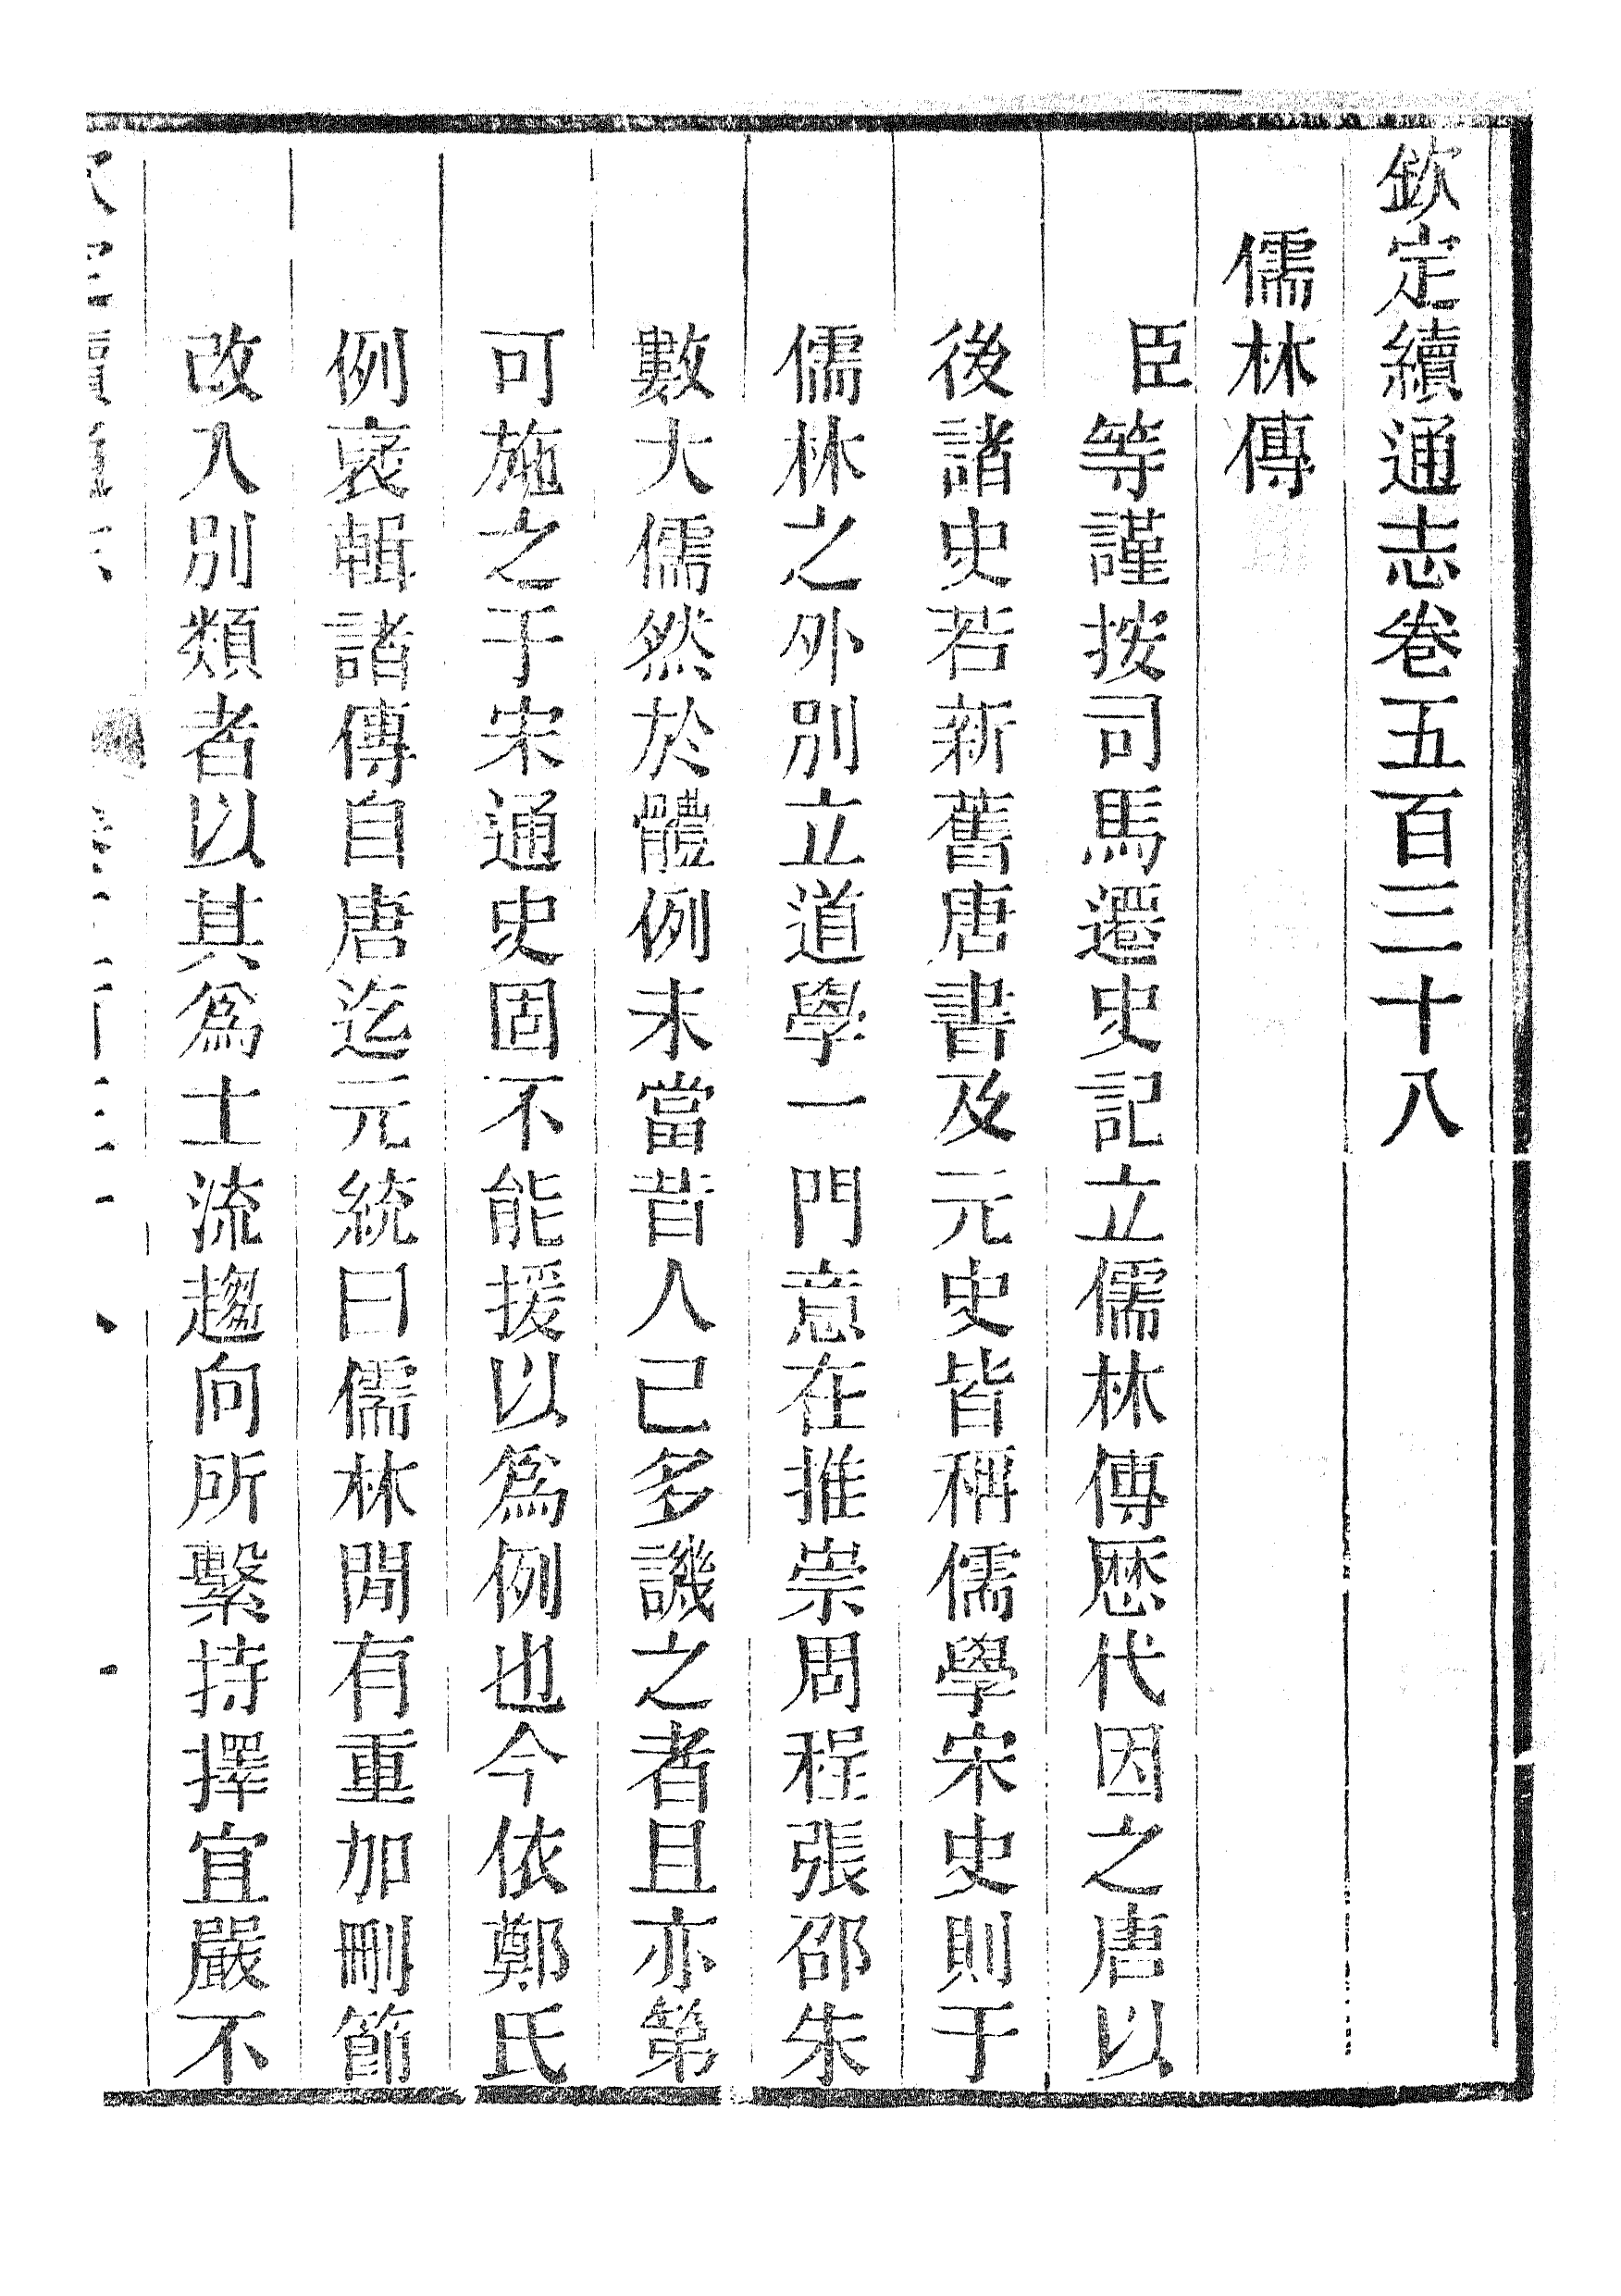 欽定續通志卷五百三十八
儒林傳
臣等謹按司馬遷史記立儒林傳歴代因之唐以
後諸史若新舊唐書及元史皆稱儒學宋史則于
儒林之外別立道學一門意在推崇周程張邵朱
數大儒然於體例未當昔人已多譏之者且亦第
可施之于宋通史固不能援以爲例也今依鄭氏
例裒輯諸傳自唐迄元統曰儒林閒有重加刪節
改入別類者以其爲士流趨向所繫持擇宜嚴不